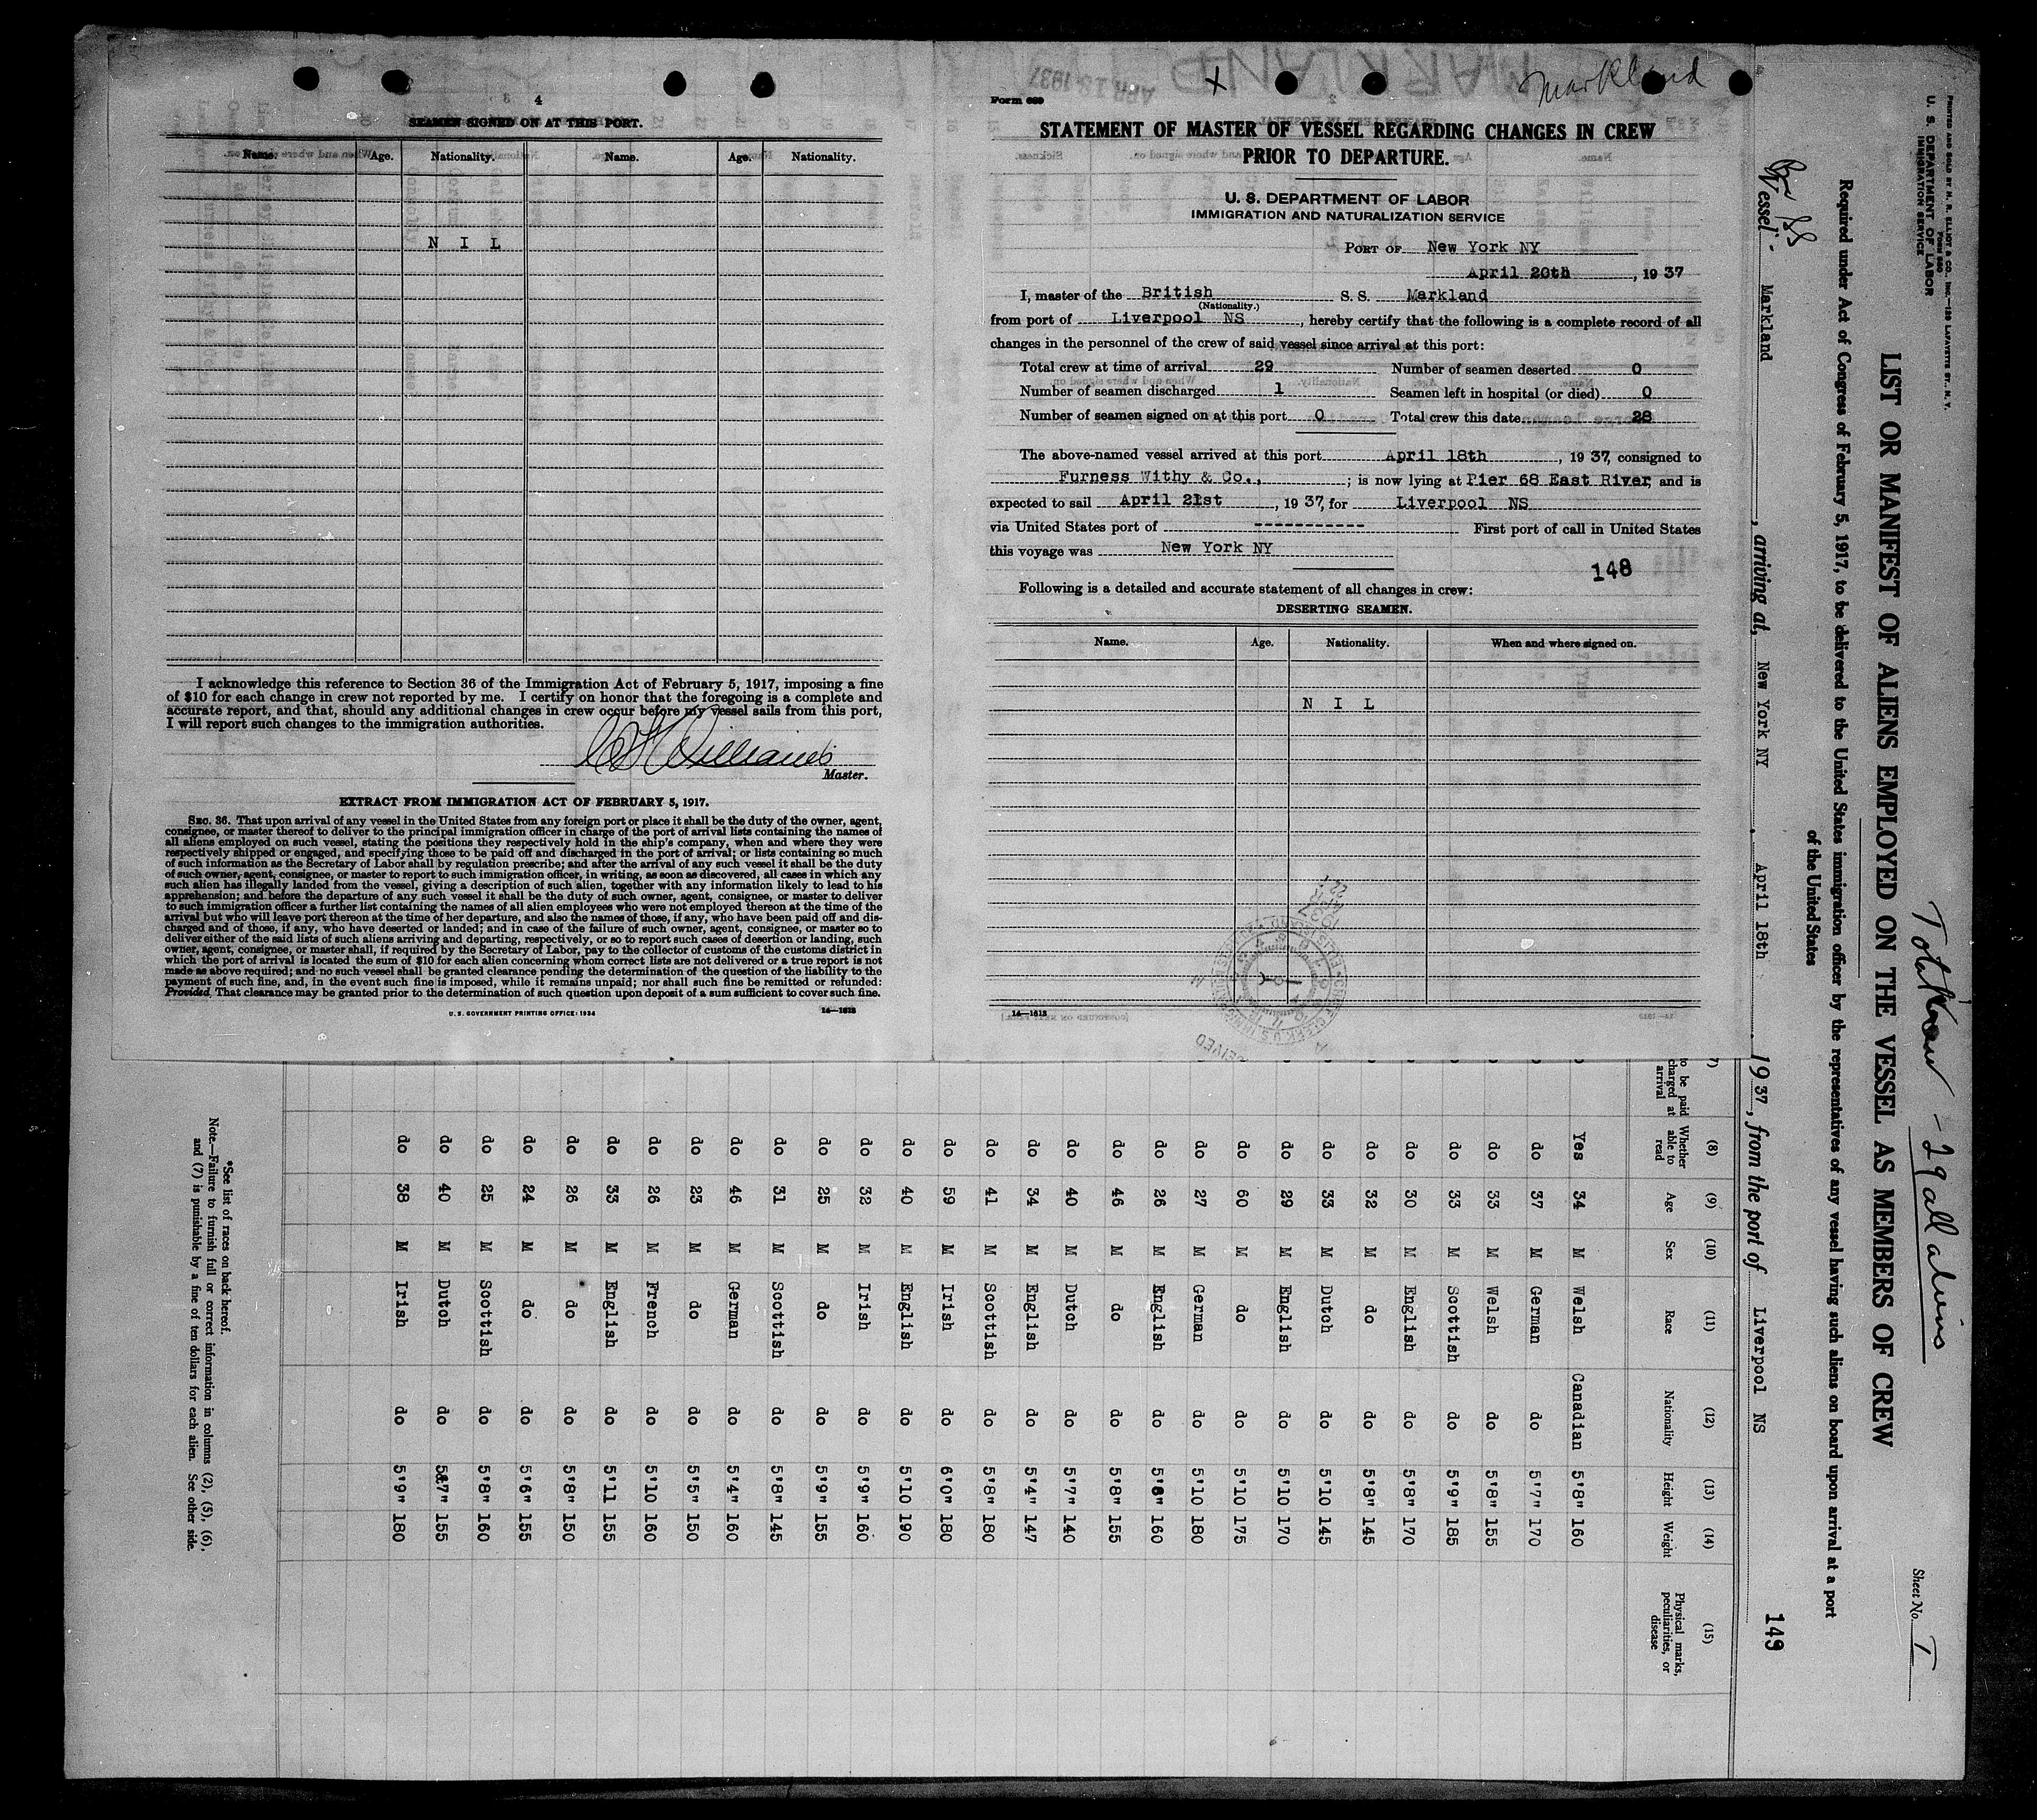 4
SEAMEN SIGNED ON AT THIS PORT.
Name. Age. Nationality. Name. Age. Nationality.
N I L
I acknowledge this reference to Section 36 of the Immigration Act of February 5, 1917, imposing a fine
of $10 for each change in crew not reported by me. I certify on honor that the foregoing is a complete and
accurate report, and that, should any additional changes in crew occur before my vessel sails from this port,
I will report such changes to the immigration authorities.
Williams
Master.
EXTRACT FROM IMMIGRATION ACT OF FEBRUARY 5, 1917.
SEC. 36. That upon arrival of any vessel in the United States from any foreign port or place it shall be the duty of the owner, agent,
consignee, or master thereof to deliver to the principal immigration officer in charge of the port of arrival lists containing the names of
all aliens employed on such vessel, stating the positions they respectively hold in the ship's company, when and where they were
respectively shipped or engaged, and specifying those to be paid off and discharged in the port of arrival; or lists containing so much
of such information as the Secretary of Labor shall by regulation prescribe; and after the arrival of any such vessel it shall be the duty
of such owner, agent, consignee, or master to report to such immigration officer, in writing, as soon as discovered, all cases in which any
such alien has illegally landed from the vessel, giving a description of such alien, together with any information likely to lead to his
apprehension; and before the departure of any such vessel it shall be the duty of such owner, agent, consignee, or master to deliver
to such immigration officer a further list containing the names of all alien employees who were not employed thereon at the time of the
arrival but who will leave port thereon at the time of her departure, and also the names of those, if any, who have been paid off and dis-
charged and of those, if any, who have deserted or landed; and in case of the failure of such owner, agent, consignee, or master so to
deliver either of the said lists of such aliens arriving and departing, respectively, or so to report such cases of desertion or landing, such
owner, agent, consignee, or master shall, if required by the Secretary of Labor, pay to the collector of customs of the customs district in
which the port of arrival is located the sum of $10 for each alien concerning whom correct lists are not delivered or a true report is not
made as above required; and no such vessel shall be granted clearance pending the determination of the question of the liability to the
payment of such fine, and, in the event such fine is imposed, while it remains unpaid; nor shall such fine be remitted or refunded:
Provided, That clearance may be granted prior to the determination of such question upon deposit of a sum sufficient to cover such fine.
U. S. GOVERNMENT PRINTING OFFICE: 1934 14—1613
Markland
Form 689
STATEMENT OF MASTER OF VESSEL REGARDING CHANGES IN CREW
PRIOR TO DEPARTURE.
U. S. DEPARTMENT OF LABOR
IMMIGRATION AND NATURALIZATION SERVICE
PORT OF New York NY
April 20th, 19 37
I, master of the British S. S. Markland
(Nationality.)
from port of Liverpool NS, hereby certify that the following is a complete record of all
changes in the personnel of the crew of said vessel since arrival at this port:
Total crew at time of arrival 29 Number of seamen deserted 0
Number of seamen discharged 1 Seamen left in hospital (or died) 0
Number of seamen signed on at this port 0 Total crew this date 28
The above-named vessel arrived at this port April 18th, 19 37, consigned to
Furness Withy & Co., ; is now lying at Pier 68 East River, and is
expected to sail April 21st, 19 37, for Liverpool NS
via United States port of ------------ First port of call in United States
this voyage was New York NY
148
Following is a detailed and accurate statement of all changes in crew:
DESERTING SEAMEN.
Name. Age. Nationality. When and where signed on.
N I L
14—1613
PRINTED AND SOLD BY H. R. ELLIOT & CO., INC.—129 LAFAYETTE ST., N. Y.
Form 680
U. S. DEPARTMENT OF LABOR
IMMIGRATION SERVICE
Total Crew - 29 all aliens
Sheet No. 1
LIST OR MANIFEST OF ALIENS EMPLOYED ON THE VESSEL AS MEMBERS OF CREW
Required under Act of Congress of February 5, 1917, to be delivered to the United States immigration officer by the representatives of any vessel having such aliens on board upon arrival at a port
of the United States
Vessel Markland, arriving at, New York NY, April 18th 1937, from the port of Liverpool NS
149
(7) (8) (9) (10) (11) (12) (13) (14) (15)
to be paid charged at arrival Whether able to read Age Sex Race Nationality Height Weight Physical marks, peculiarities, or disease
Yes 34 M Welsh Canadian 5'8" 160
do 37 M German do 5'7" 170
do 33 M Welsh do 5'8" 155
do 33 M Scottish do 5'9" 185
do 30 M English do 5'8" 170
do 32 M do do 5'8" 145
do 33 M Dutch do 5'10 145
do 29 M English do 5'10 170
do 60 M do do 5'10 175
do 27 M German do 5'10 180
do 26 M English do 5'8" 160
do 46 M do do 5'8" 155
do 40 M Dutch do 5'7" 140
do 34 M English do 5'4" 147
do 41 M Scottish do 5'8" 180
do 59 M Irish do 6'0" 180
do 40 M English do 5'10 190
do 32 M Irish do 5'9" 160
do 25 M do do 5'9" 155
do 31 M Scottish do 5'8" 145
do 46 M German do 5'4" 160
do 23 M do do 5'5" 150
do 26 M French do 5'10 160
do 33 M English do 5'11 155
do 26 M do do 5'8" 150
do 24 M do do 5'6" 155
do 25 M Scottish do 5'8" 160
do 40 M Dutch do 5'7" 155
do 38 M Irish do 5'9" 180
*See list of races on back hereof.
Note.—Failure to furnish full or correct information in columns (2), (5), (6),
and (7) is punishable by a fine of ten dollars for each alien. See other side.